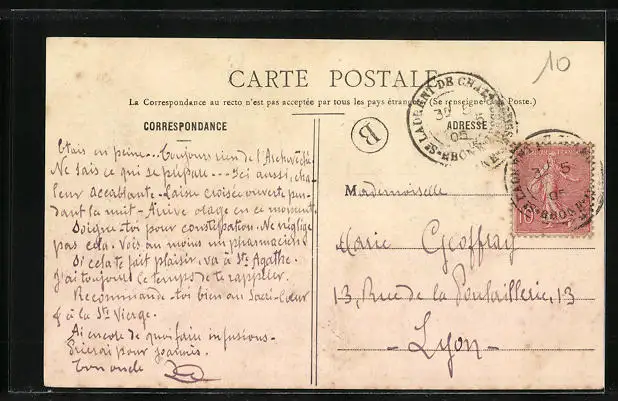 10
CARTE POSTALE
La Correspondance au recto n'est pas acceptée par tous les pays étrangers (Se renseigner à la Poste.)
CORRESPONDANCE
ADRESSE
B
ST LAURENT DE CHAM
05
RHONE
Etais en peine... Toujours rien de l'Archevêché.
Ne sais ce qui se prépare... Ici aussi, cha-
leur accablante. Laisse croisée ouverte pen-
dant la nuit - Arrive orage en ce moment.
Soigne-toi pour constipation. Ne néglige
pas cela. Vois au moins un pharmacien
Si cela te fait plaisir, va à Ste Agathe.
J'ai toujours le temps de te rappeler.
Recommande-toi bien au Sacré-Cœur
& à la Ste Vierge.
Ai encore de quoi faire infusions.
Prierai pour
Ton oncle
Mademoiselle
Marie Geoffray
13, Rue de la Poulaillerie, 13
- Lyon -
10